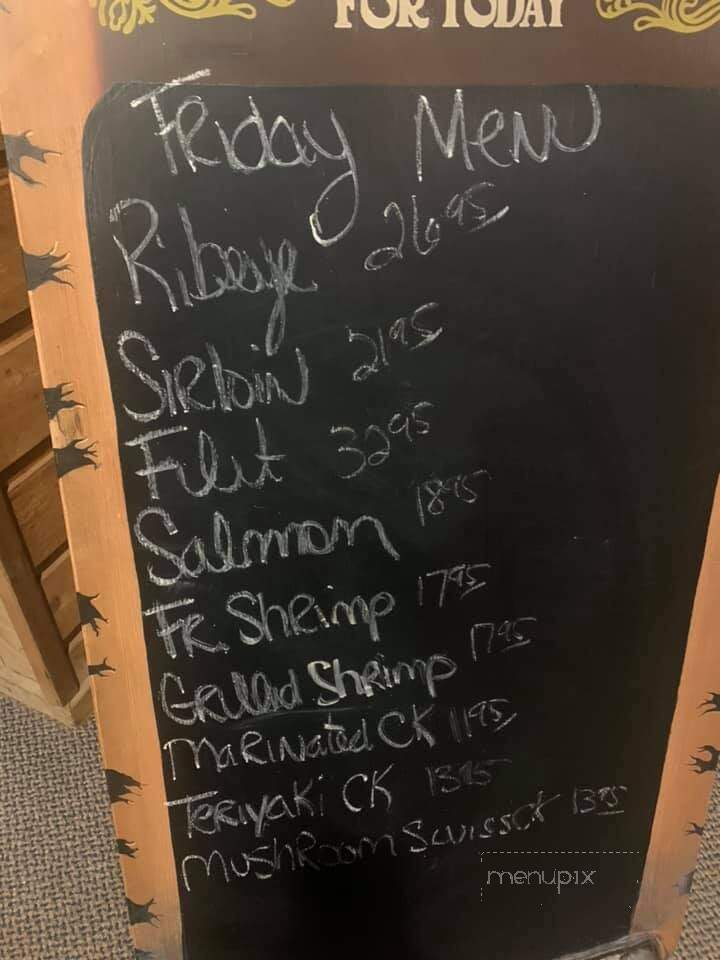 FOR TODAY
Friday Menu
Ribeye 26.95
Sirloin 21.95
Filet 32.95
Salmon 18.95
FR Shrimp 17.95
Grilled Shrimp 17.95
Marinated CK 11.95
Teriyaki CK 13.95
Mushroom Swiss CK 13.95
menupix